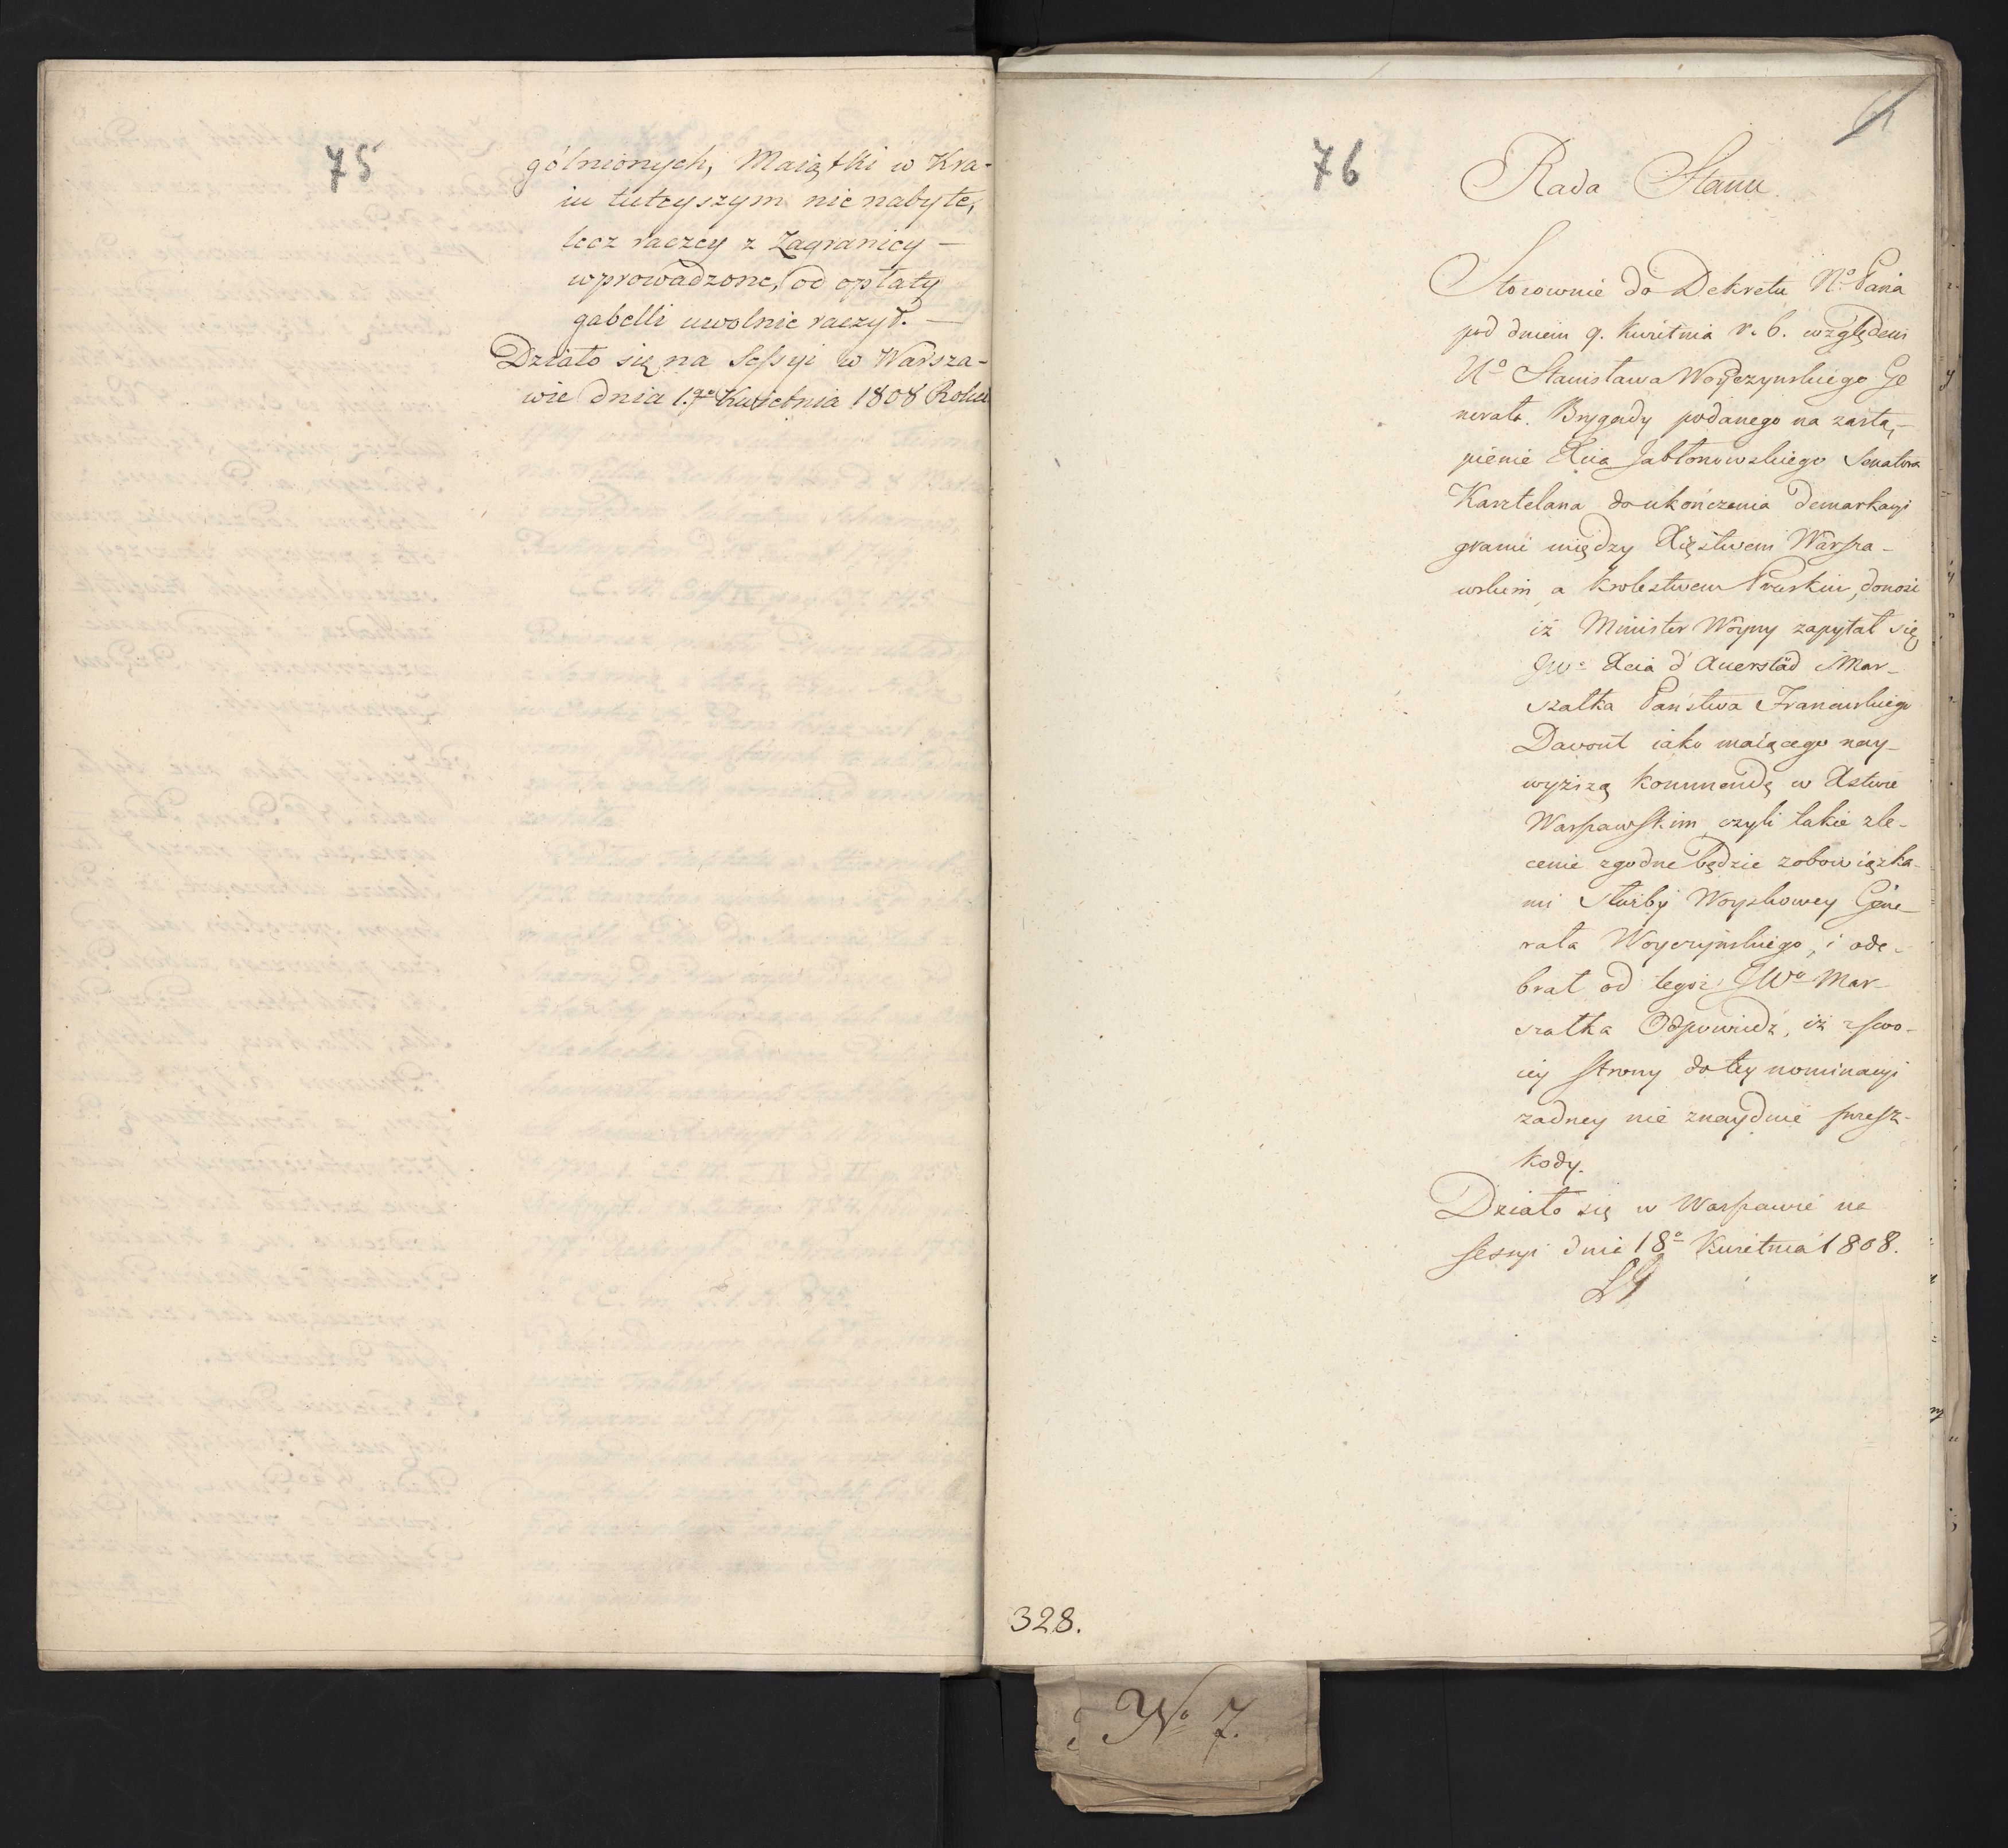 75
gólnionych, Maiątki w Kra-
iu tuteyszym nie nabyte,
lecz raczey z Zagranicy —
wprowadzone, od opłaty
gabelli uwolnić raczył. —
Działo się na Sessyi w Warsza-
wie dnia 17º Kwietnia 1808 Roku
76
Rada Stanu
Stosownie do Dekretu Nº Pana
pod dniem 9. Kwietnia r. b. względem
Uº Stanisława Woyczynskiego Ge
nerała Brygady podanego na zastą-
pienie Xcia Jabłonowskiego Senatora
Kasztelana do ukończenia demarkacyi
granic między Xięstwem Warsza-
wskim a Krolestwem Pruskim, donosi
iż Minister Woyny zapytał się
JWº Xcia d'Auerstäd i Mar-
szałka Państwa Francuskiego
Davout iako maiącego nay-
wyższą kommendę w Xstwie
Warszawskim, czyli takie zle-
cenie zgodne będzie z obowiązka-
mi służby Woyskowey Gene-
rała Woyczyńskiego, i ode-
brał od tegoż JWº Mar-
szałka Odpowiedź, iż z swo-
iey strony do tey nominacyi
zadney nie znayduie przesz-
kody.
Działo się w Warszawie na
sessyi dnia 18º Kwietnia 1808.
328.
Nº 7.